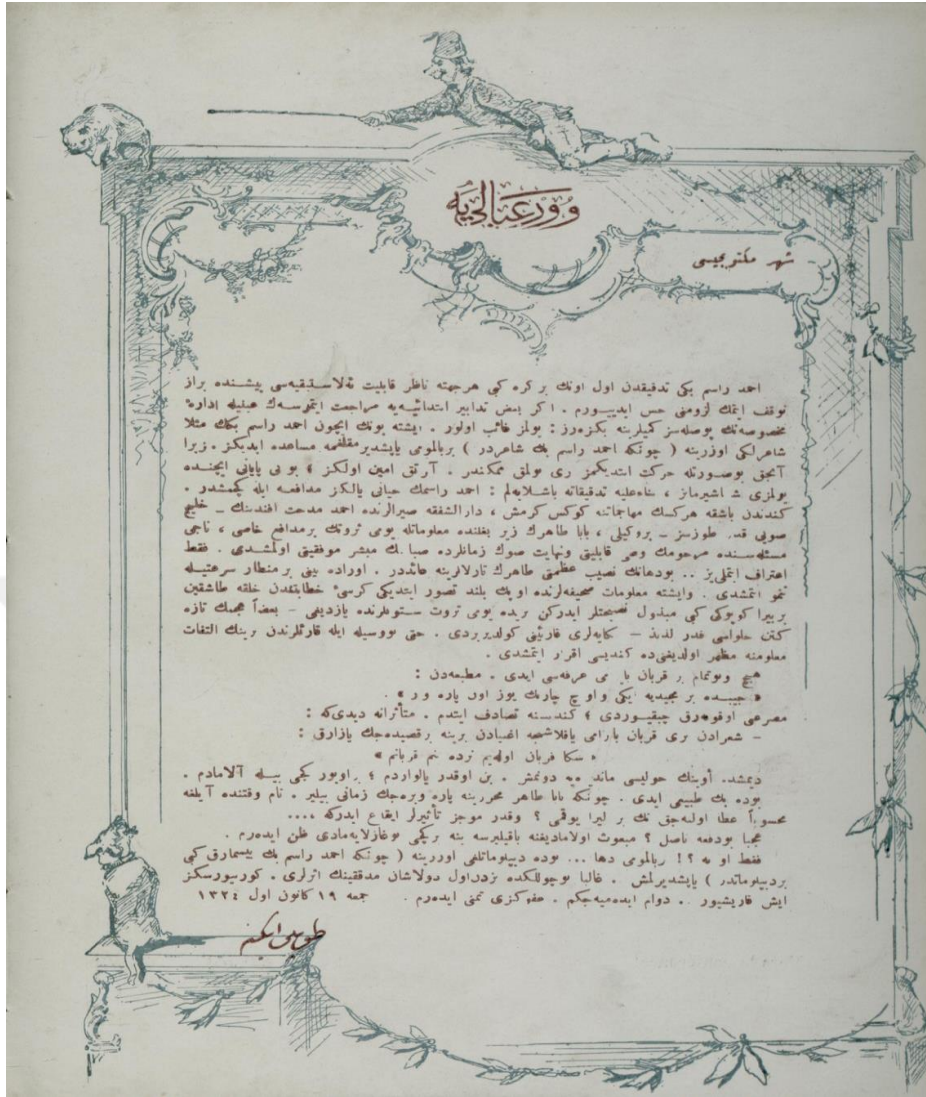 شهر مكتوبجیسی
احمد راسم بكی تدقیقدن اول اونك بر كره كی هر جهته ناظر قابلیت پیشنده براز
توقف ایتمك لزومنی حس ایدییورم . اكر بعض تدابیر ابتدائیه‌یه مراجعت ایتمزسه‌ك عینیله ادارهٔ
مخصوصه‌نك پوصله‌سز كمیلرینه بكزه‌رز : یولمز غائب اولور . ایشته بونك ایچون احمد راسم بكك مثلا
شاعرلكی اوزرینه ( چونكه احمد راسم بك شاعردر ) بربالومی یاپشدیرمقلغمه مساعده ایدیكز . زیرا
آنجق بوصورتله حركت ایتدیكمز ری بولمق ممكندر . آرتق امین اولكز ؛ بو بی پایانی ایچنده
یولمزی شاشیرماز ، بناءعلیه تدقیقاته باشلایه‌لم : احمد راسمك حیاتی یالكز مدافعه ایله كچمشدر .
كندندن باشقه هركسك مهاجماتنه كوكس كرمش ، دارالشفقه صیرالرنده احمد مدحت افندینك – خلیج
صویی قدر طوزسز – بروكیلی ، بابا طاهرك زیر بغلنده معلوماتله یومی ثروتك برمدافع خاصی ، ناجی
مسئله‌سنده مرحومك وصی قابلیتی ونهایت صوك زمانلرده صباحك مبشر موفقیتی اولمشدی . فقط
اعتراف ایتملی‌یز .. بودهانك نصیب عظمتی طاهرك تارلالرینه عائددر . اوراده بینی بر منطار سرعتیله
نمو ایتمشدی . وایشته معلومات صحیفه‌لرنده او پك بلند تصور ایتدیكی كرسیٔ خطابتندن خلقه طاشقین
بر بیرا كوپوكی كبی مبذول نصیحتلر ایدركن بریده یومی ثروت ستونلرنده یازدیغی – بعضاً عجمك تازه
كتن حلواسی قدر لذیذ – كنایه‌لری قارئینی كولدیریردی . حتی بووسیله ایله قارئلرندن برینك التفات
معلومنه مظهر اولدیغنی‌ده كندیسی اقرار ایتمشدی .
هیچ اونوتمام بر قربان بایرامی عرفه‌سی ایدی . مطبعه‌دن :
« جیبمده بر مجیدیه ایكی واو چ چاریك یوز اون پاره وار » .
مصرعی اوقویه‌رق چیقیوردی ؛ كندیسنه تصادف ایتدم . متأثرانه دیدی‌كه :
– شعرادن بری قربان بایرامی یاقلاشنجه اغنیادن برینه بر قصیده‌جك یازارق :
« سكا قربان اوله‌یم نرده بنم قربانم »
دیمشد. أوینك حولیسی ماندره‌یه دونمش . بن اوقدر یالواردم ؛ بر اویوز كچی بیله آلامادم .
بوده پك طبیعی ایدی . چونكه بابا طاهر محررینه پاره ویره‌جك زمانی بیلیر . تام وقتنده آیلغه
محسوباً عطا اولنه‌جق تك بر لیرا یوقمی ؟ نه‌قدر موجز تأثیرلر ایقاع ایدركه ....
عجبا بودفعه ناصل ؟ مبعوث اولامادیغنه باقیلیرسه ینه بركچی بوغازلایه‌مادی ظن ایده‌رم .
فقط او نه ؟! بربالومی دها ... بوده دیپلوماتلغی اوزرینه ( چونكه احمد راسم بك بیسمارق كبی
بردیپلوماتدر ) یاپشدیرلمش . غالبا بویوللكده بزدن‌اول دولاشان مدققینك اثرلری . كورییورسكز
ایش قاریشیور . دوام ایده‌میه‌جكم . عفوكزی تمنی ایده‌رم . جمعه ١٩ كانون اول ١٣٢٤